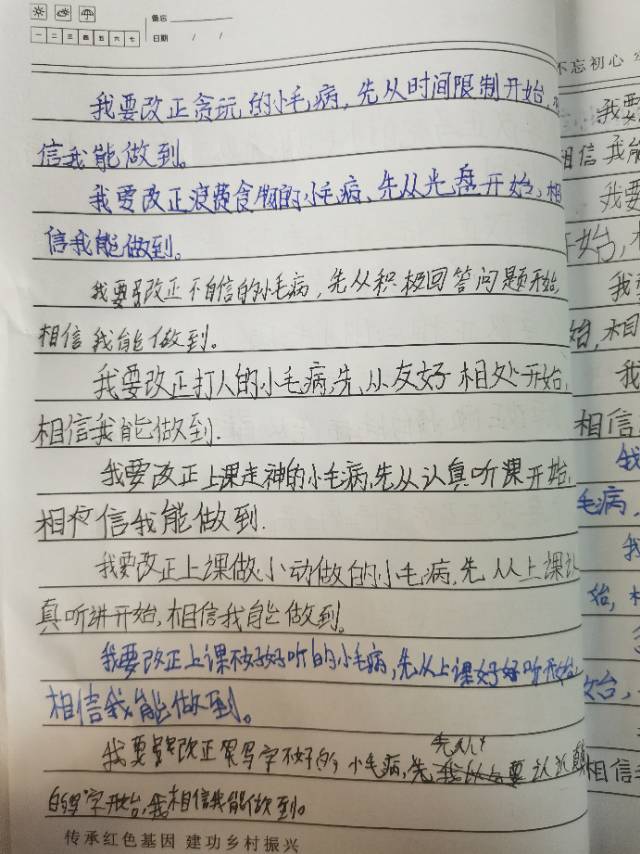 备忘
一 二 三 四 五 六 七
日期 / /
我要改正贪玩的小毛病，先从时间限制开始，相
信我能做到。
我要改正浪费食物的小毛病、先从光盘开始，相
信我能做到。
我要改正不自信的小毛病，先从积极回答问题开始，
相信我能做到。
我要改正打人的小毛病，先从友好相处开始，
相信我能做到.
我要改正上课走神的小毛病，先从认真听课开始，
相信我能做到.
我要改正上课做小动做的小毛病，先从上课认
真听讲开始，相信我能做到。
我要改正上课不好好听的小毛病，先从上课好好听开始，
相信我能做到。
我要改正写字不好的小毛病，先从认认真真
的写字开始，我相信我能做到。
传承红色基因 建功乡村振兴
不忘初心
我要
相信我能
我要
开始，
我
始，相
我
相信
我
毛病，
我
始，
始，
相信